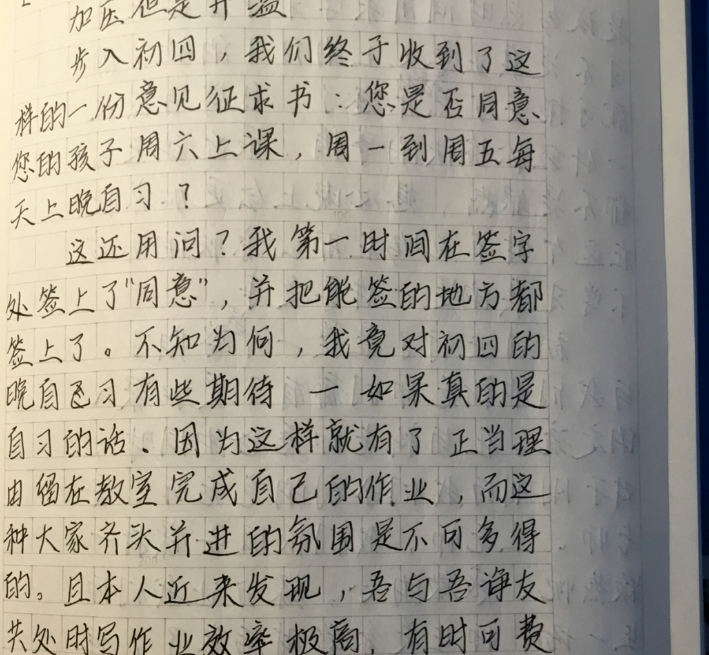 加压但是升温
步入初四，我们终于收到了这
样的一份意见征求书：您是否同意
您的孩子周六上课，周一到周五每
天上晚自习？
这还用问？我第一时间在签字
处签上了“同意”，并把能签的地方都
签上了。不知为何，我竟对初四的
晚自习有些期待一如果真的是
自习的话、因为这样就有了正当理
由留在教室完成自己的作业，而这
种大家齐头并进的氛围是不可多得
的。且本人近来发现，吾与吾诤友
共处时写作业效率极高，有时可费